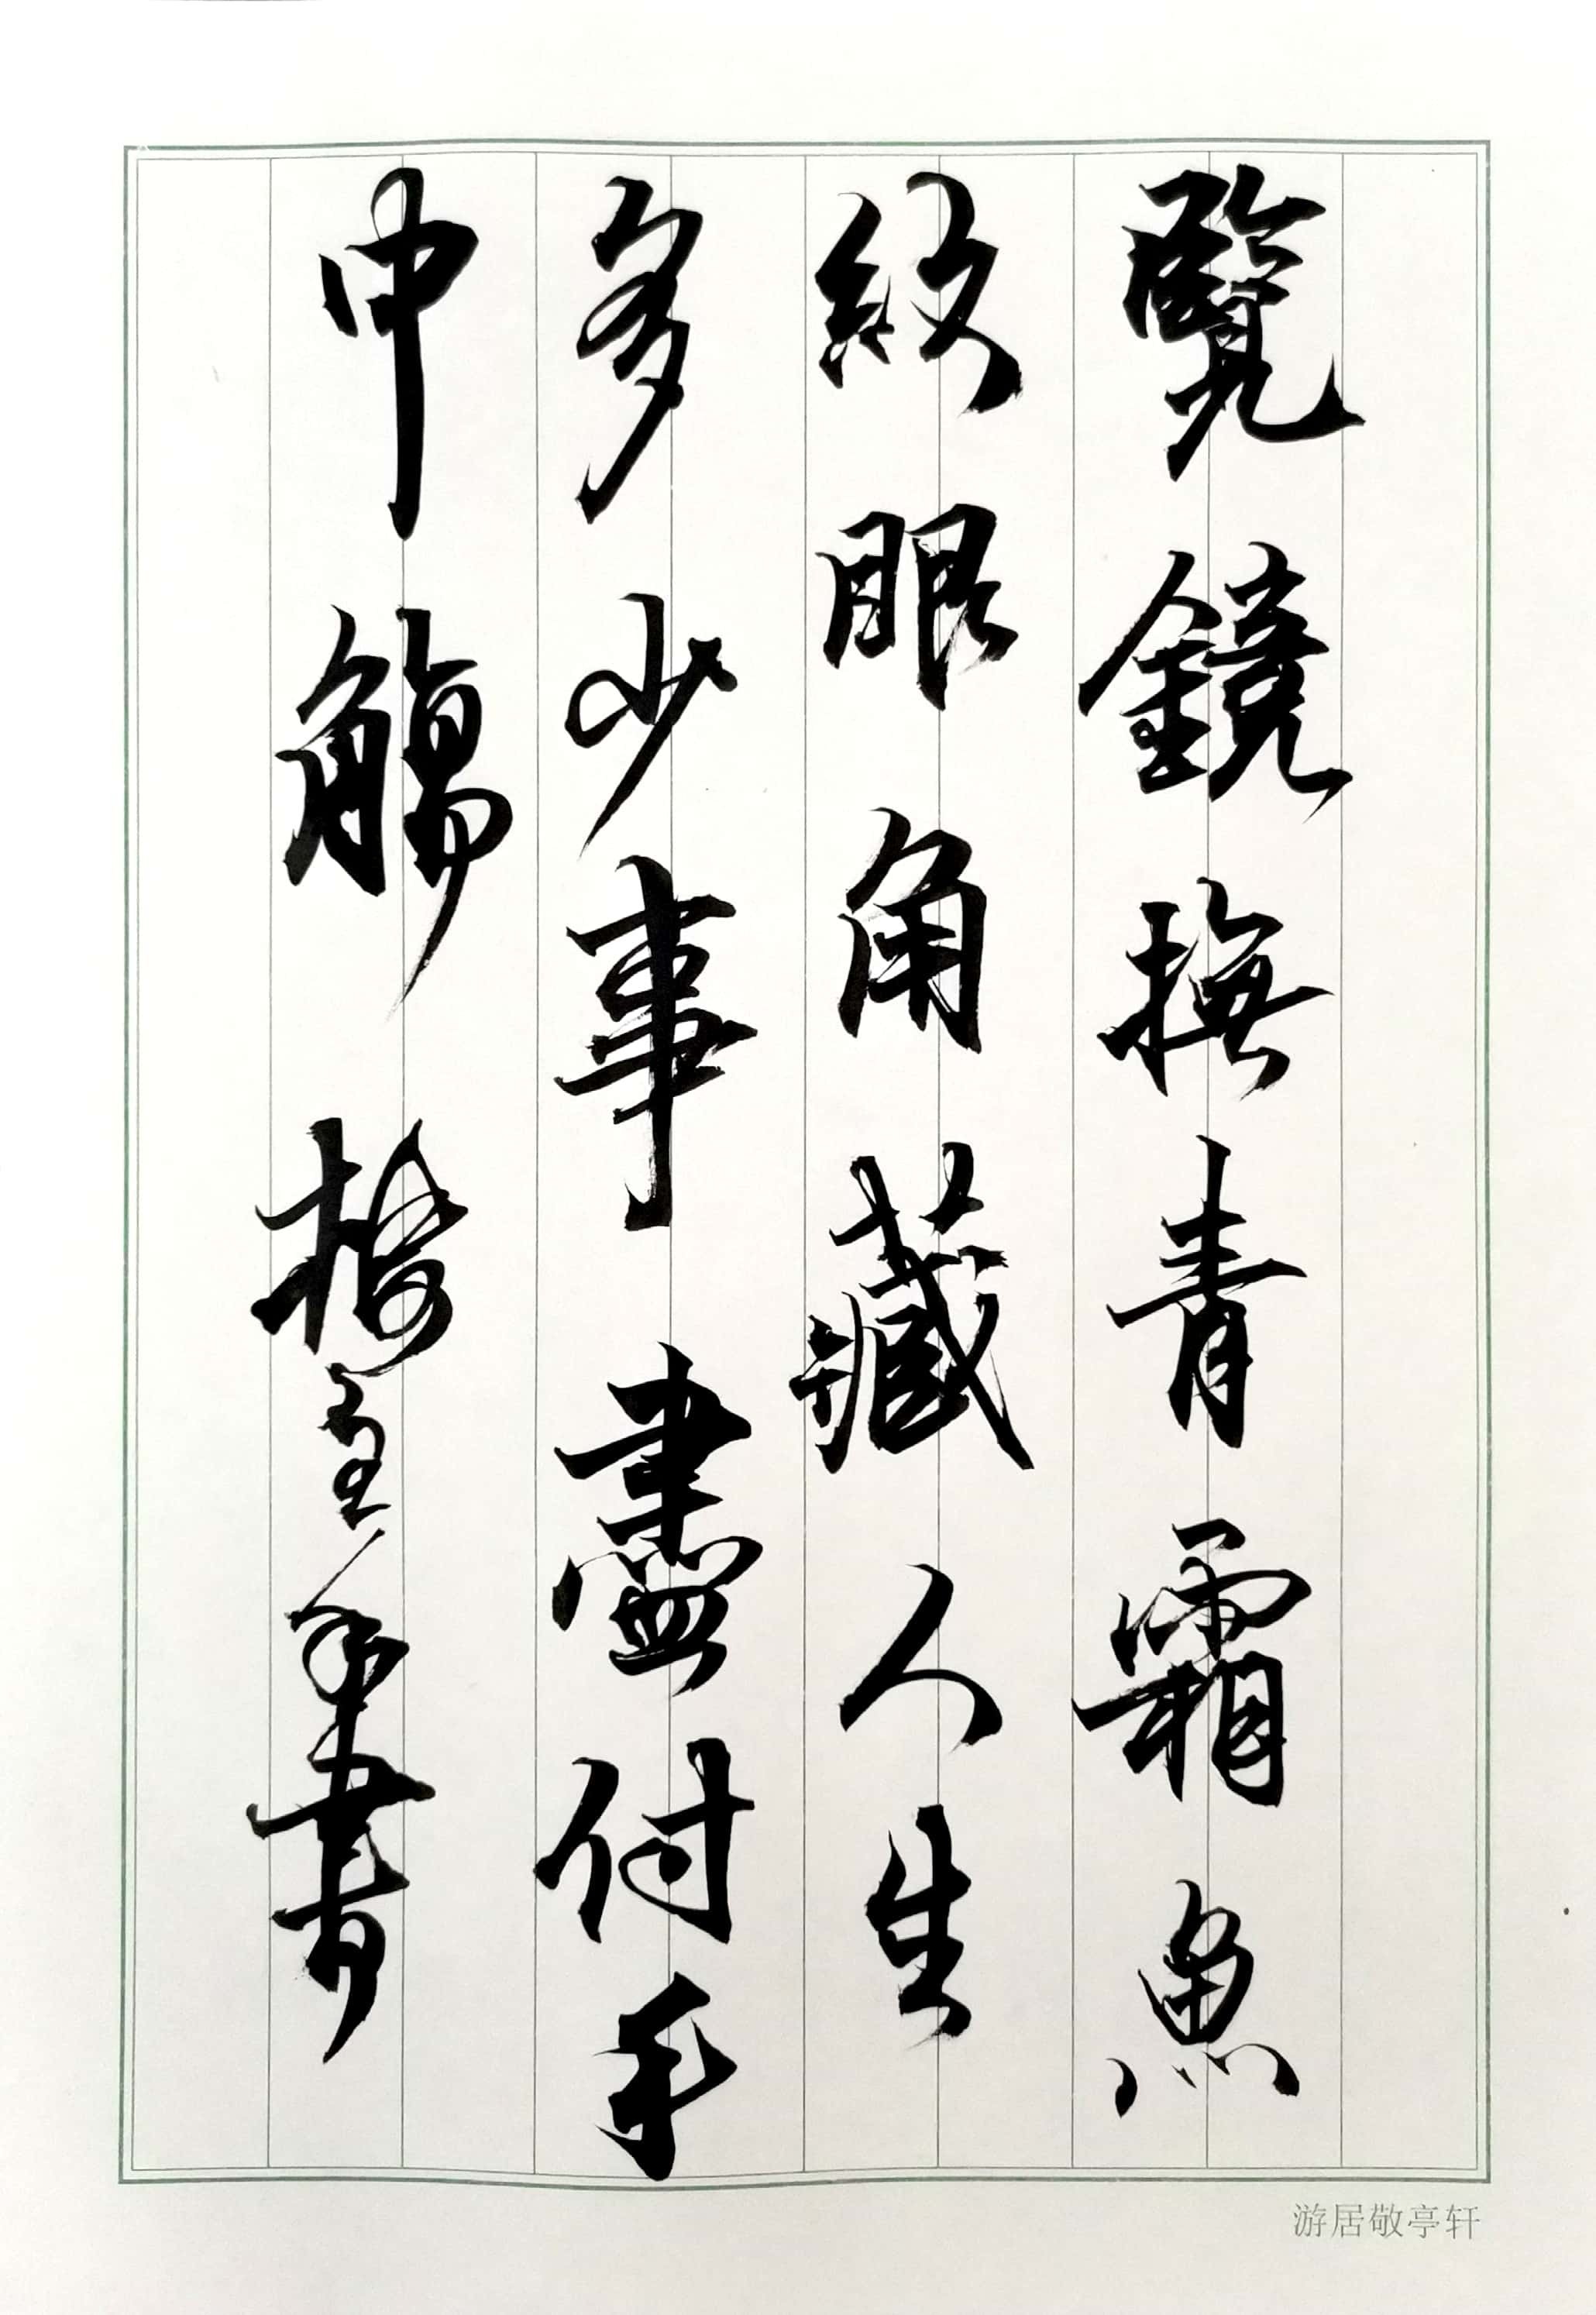 覽鏡撫青霜魚
紋眼角藏人生
多少事盡付手
中觴
書
游居敬亭轩